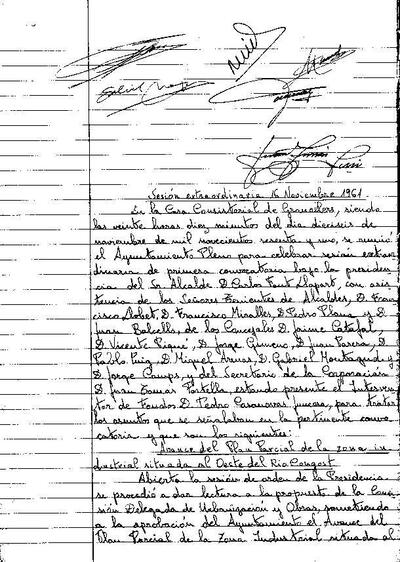 Sesión extraordinaria 16 Noviembre 1961
En la Casa Consistorial de Granollers, siendo
las veinte horas diez minutos del dia dieciseis de
noviembre de mil novecientos sesenta y uno, se reunió
el Ayuntamiento Pleno para celebrar sesión extraor
dinaria de primera convocatoria bajo la presiden
cia del Sr. Alcalde D. Carlos Font Llopart, con asis
tencia de los Señores Tenientes de Alcaldes, D. Fran
cisco Llobet, D. Francisco Miralles, D. Pedro Plana y D.
Juan Balcells, de los Concejales D. Jaime Catafal,
D. Vicente Piqué, D. Jorge Gimeno, D. Juan Parera, D.
Pablo Puig, D. Miguel Arenas, D. Gabriel Montagud y
D. Jorge Camps, y del Secretario de la Corporación
D. Juan Portella, estando presente el Interven
tor de Fondos D. Pedro Casanovas para tratar
los asuntos que se señalaban en la pertinente convo
catoria y que son los siguientes:
Avance del Plan Parcial de la zona in
dustrial situada al Oeste del Rio Congost
Abierta la sesión de orden de la Presidencia
se procedió a dar lectura a la propuesta de la Comi
sión Delegada de Urbanización y Obras, sometiendo
a la aprobación del Ayuntamiento el Avance del
Plan Parcial de la Zona Industrial situada al